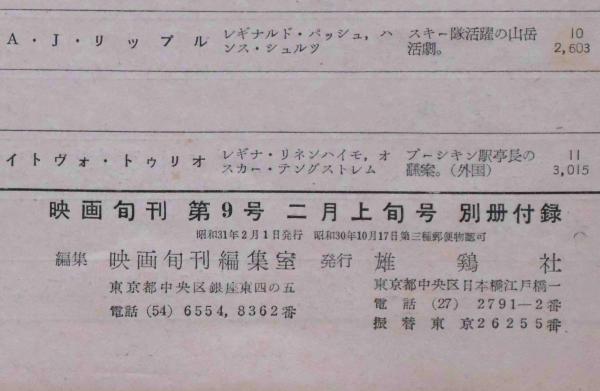 A・J・リップル レギナルド・パッシュ, ハンス・シュルツ スキー隊活躍の山岳活劇。 10 2,603
イトヴォ・トゥリオ レギナ・リネンハイモ, オスカー・テングストレム プーシキン駅亭長の翻案。(外国) 11 3,015
映画旬刊 第9号 二月上旬号 別冊付録
昭和31年2月1日発行 昭和30年10月17日第三種郵便物認可
編集 映画旬刊編集室 発行 雄鶏社
東京都中央区銀座東四の五 東京都中央区日本橋江戸橋一
電話 (54) 6554, 8362番 電話 (27) 2791―2番
振替東京26255番